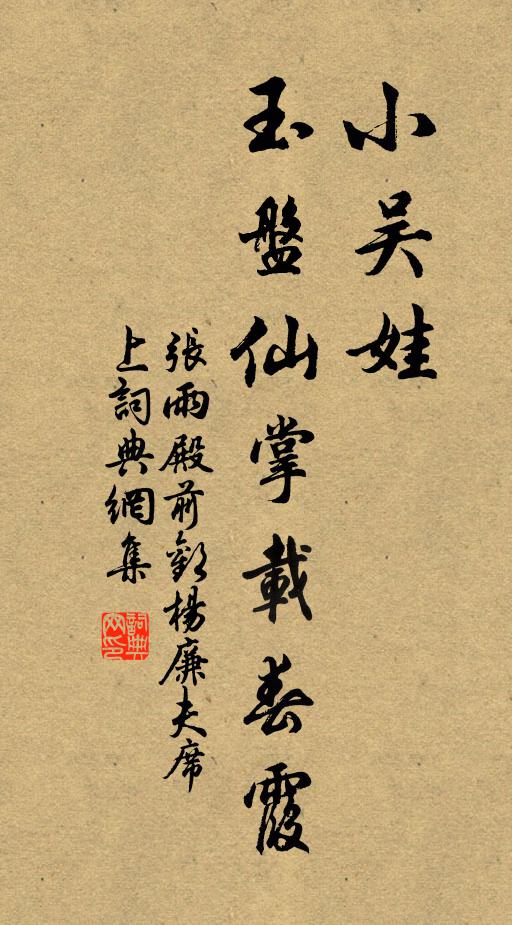 小吳娃
玉盤仙掌載春霞
張雨殿前歡楊廉夫席
上詞典網集
詞典網印